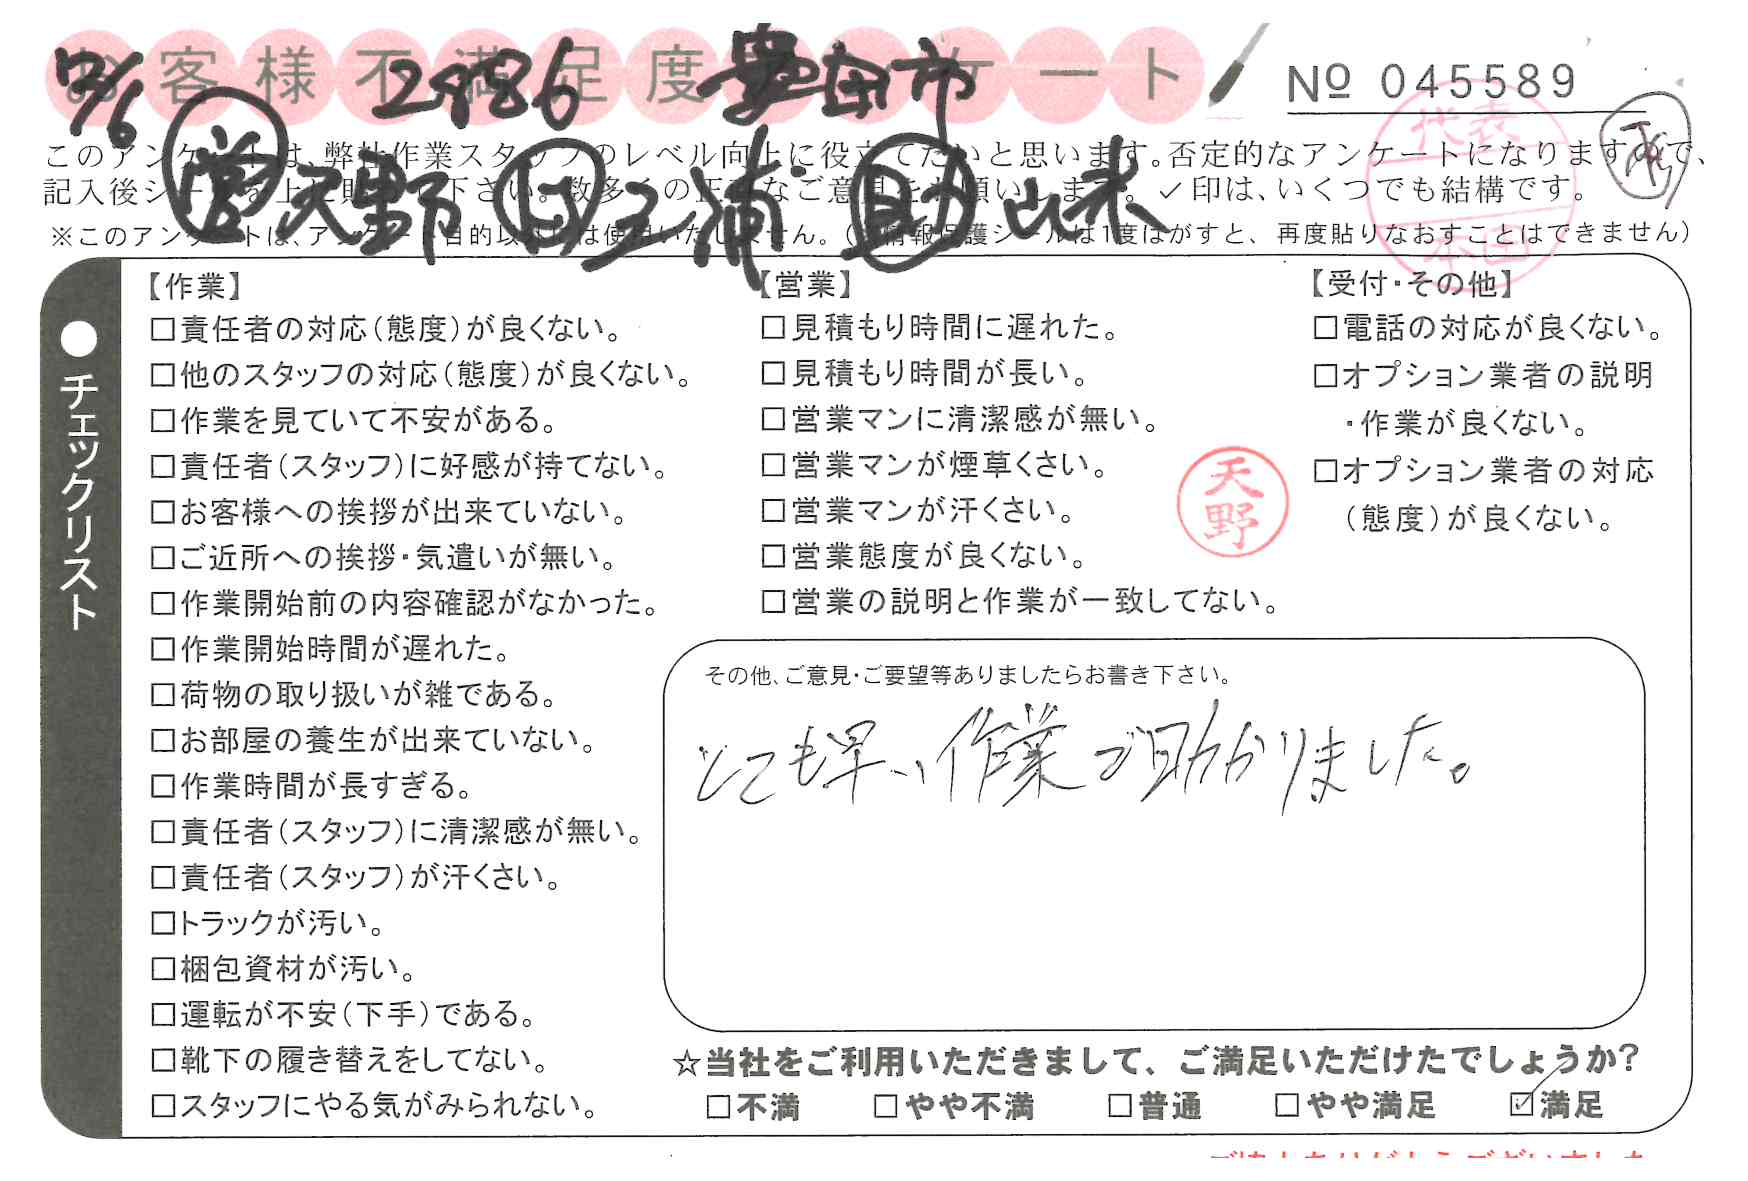 お客様不満足度アンケート
12/6 2886 豊田市
No 045589
代表
本田
営 天野 上 三浦 助 山本
このアンケートは、弊社作業スタッフのレベル向上に役立てたいと思います。否定的なアンケートになりますので、
記入後シールを上に貼って下さい。数多くの正直なご意見をお願いします。✓印は、いくつでも結構です。
※このアンケートは、アンケート目的以外には使用いたしません。（個人情報保護シールは1度はがすと、再度貼りなおすことはできません）
●チェックリスト
【作業】
□責任者の対応（態度）が良くない。
□他のスタッフの対応（態度）が良くない。
□作業を見ていて不安がある。
□責任者（スタッフ）に好感が持てない。
□お客様への挨拶が出来ていない。
□ご近所への挨拶・気遣いが無い。
□作業開始前の内容確認がなかった。
□作業開始時間が遅れた。
□荷物の取り扱いが雑である。
□お部屋の養生が出来ていない。
□作業時間が長すぎる。
□責任者（スタッフ）に清潔感が無い。
□責任者（スタッフ）が汗くさい。
□トラックが汚い。
□梱包資材が汚い。
□運転が不安（下手）である。
□靴下の履き替えをしてない。
□スタッフにやる気がみられない。
【営業】
□見積もり時間に遅れた。
□見積もり時間が長い。
□営業マンに清潔感が無い。
□営業マンが煙草くさい。
□営業マンが汗くさい。
□営業態度が良くない。
□営業の説明と作業が一致してない。
天野
【受付・その他】
□電話の対応が良くない。
□オプション業者の説明
・作業が良くない。
□オプション業者の対応
（態度）が良くない。
その他、ご意見・ご要望等ありましたらお書き下さい。
とても早い作業で助かりました。
☆当社をご利用いただきまして、ご満足いただけたでしょうか?
□不満 □やや不満 □普通 □やや満足 ☑満足